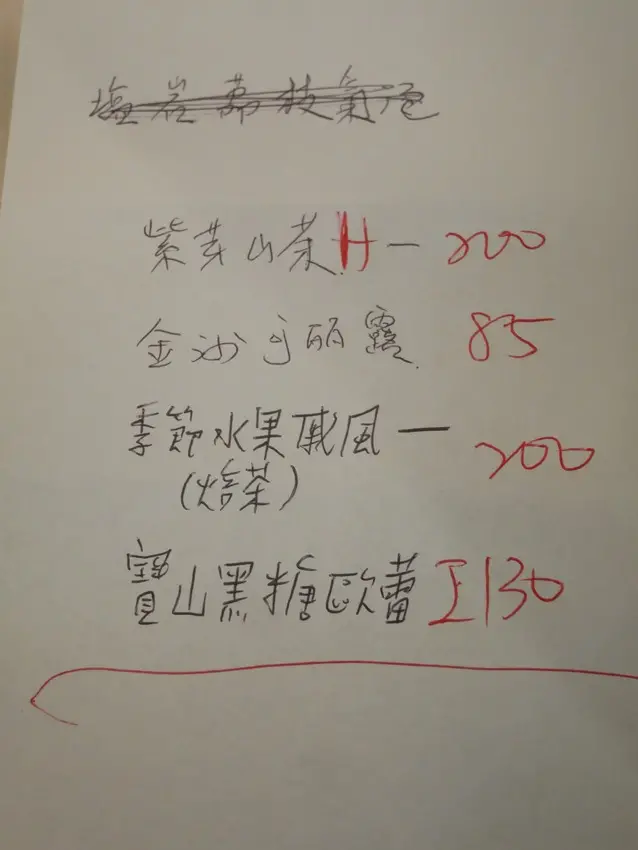 塩岩荔枝氣泡
紫芽山茶H一 200
金沙可丽露 85
季節水果戚風一 200
(焙茶)
寶山黑糖歐蕾 I 130